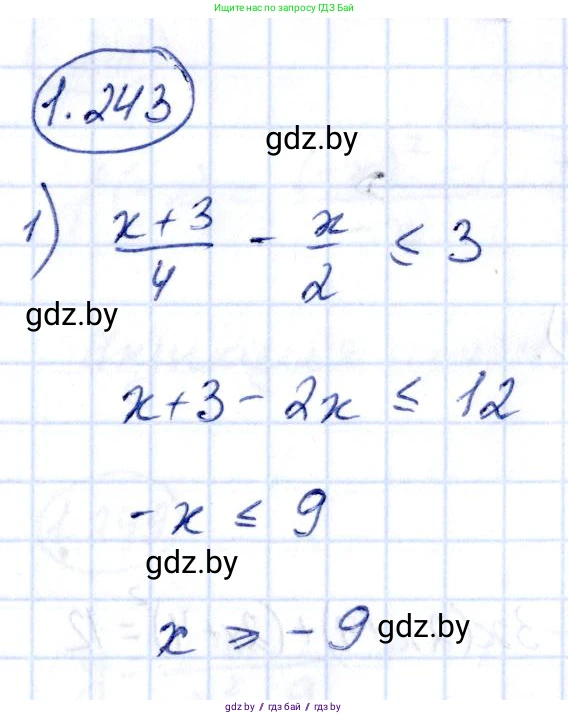 Ищите нас по запросу: ГДЗ Бай
1.243
gdz.by
1) (x+3)/4 - x/2 ≤ 3
gdz.by
x+3 - 2x ≤ 12
-x ≤ 9
gdz.by
x ≥ -9 gdz.by
gdz.by // гдз бай // gdz by